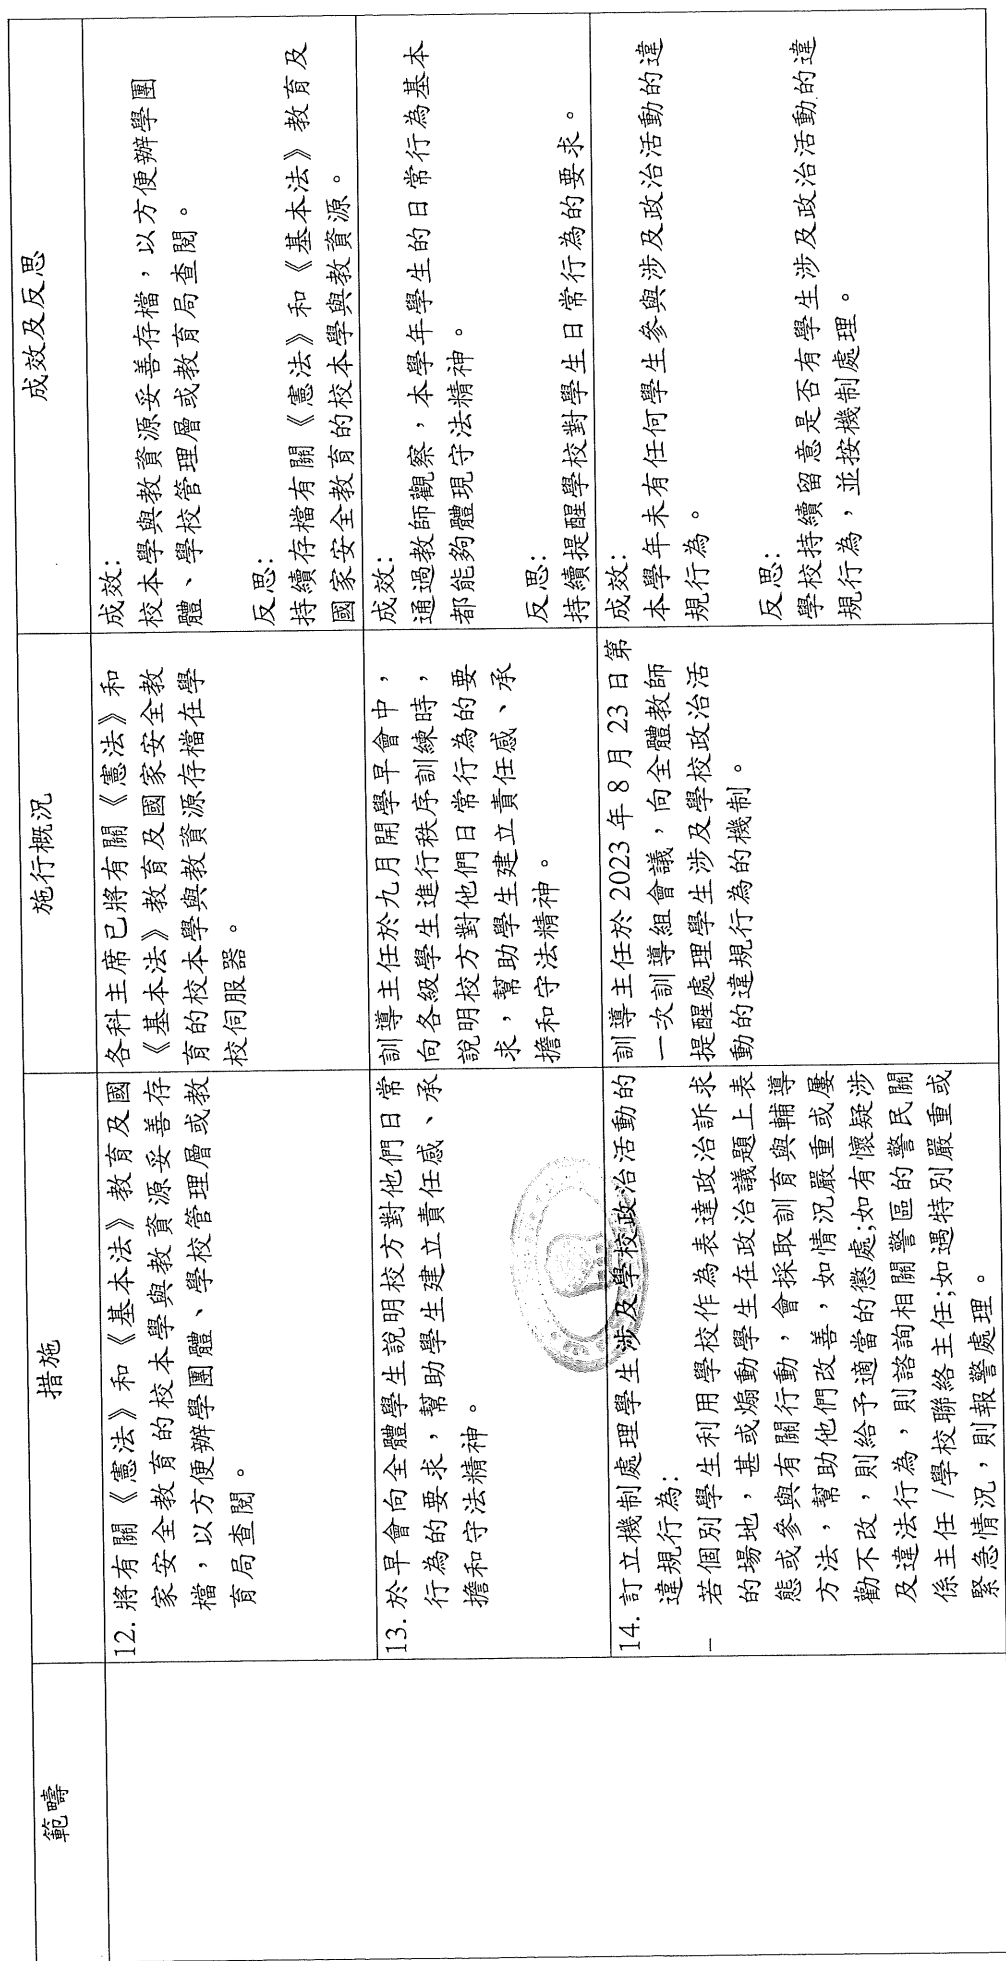 範疇
措施
施行概況
成效及反思
12. 將有關《憲法》和《基本法》教育及國
家安全教育的校本學與教資源妥善存
檔，以方便辦學團體、學校管理層或教
育局查閱。
各科主席已將有關《憲法》和
《基本法》教育及國家安全教
育的校本學與教資源存檔在學
校伺服器。
成效:
校本學與教資源妥善存檔，以方便辦學團
體、學校管理層或教育局查閱。
反思:
持續存檔有關《憲法》和《基本法》教育及
國家安全教育的校本學與教資源。
13. 於早會向全體學生說明校方對他們日常
行為的要求，幫助學生建立責任感、承
擔和守法精神。
訓導主任於九月開學早會中，
向各級學生進行秩序訓練時，
說明校方對他們日常行為的要
求，幫助學生建立責任感、承
擔和守法精神。
成效:
通過教師觀察，本學年學生的日常行為基本
都能夠體現守法精神。
反思:
持續提醒學校對學生日常行為的要求。
14. 訂立機制處理學生涉及學校政治活動的
違規行為:
– 若個別學生利用學校作為表達政治訴求
的場地，甚或煽動學生在政治議題上表
態或參與有關行動，會採取訓育與輔導
方法，幫助他們改善，如情況嚴重或屢
勸不改，則給予適當的懲處;如有懷疑涉
及違法行為，則諮詢相關警區的警民關
係主任 /學校聯絡主任;如遇特別嚴重或
緊急情況，則報警處理。
訓導主任於 2023 年 8 月 23 日第
一次訓導組會議，向全體教師
提醒處理學生涉及學校政治活
動的違規行為的機制。
成效:
本學年未有任何學生參與涉及政治活動的違
規行為。
反思:
學校持續留意是否有學生涉及政治活動的違
規行為，並按機制處理。